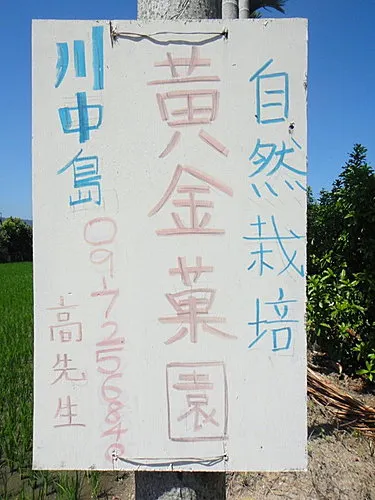 自然栽培
黄金菓園
川中島
0917256840
高先生